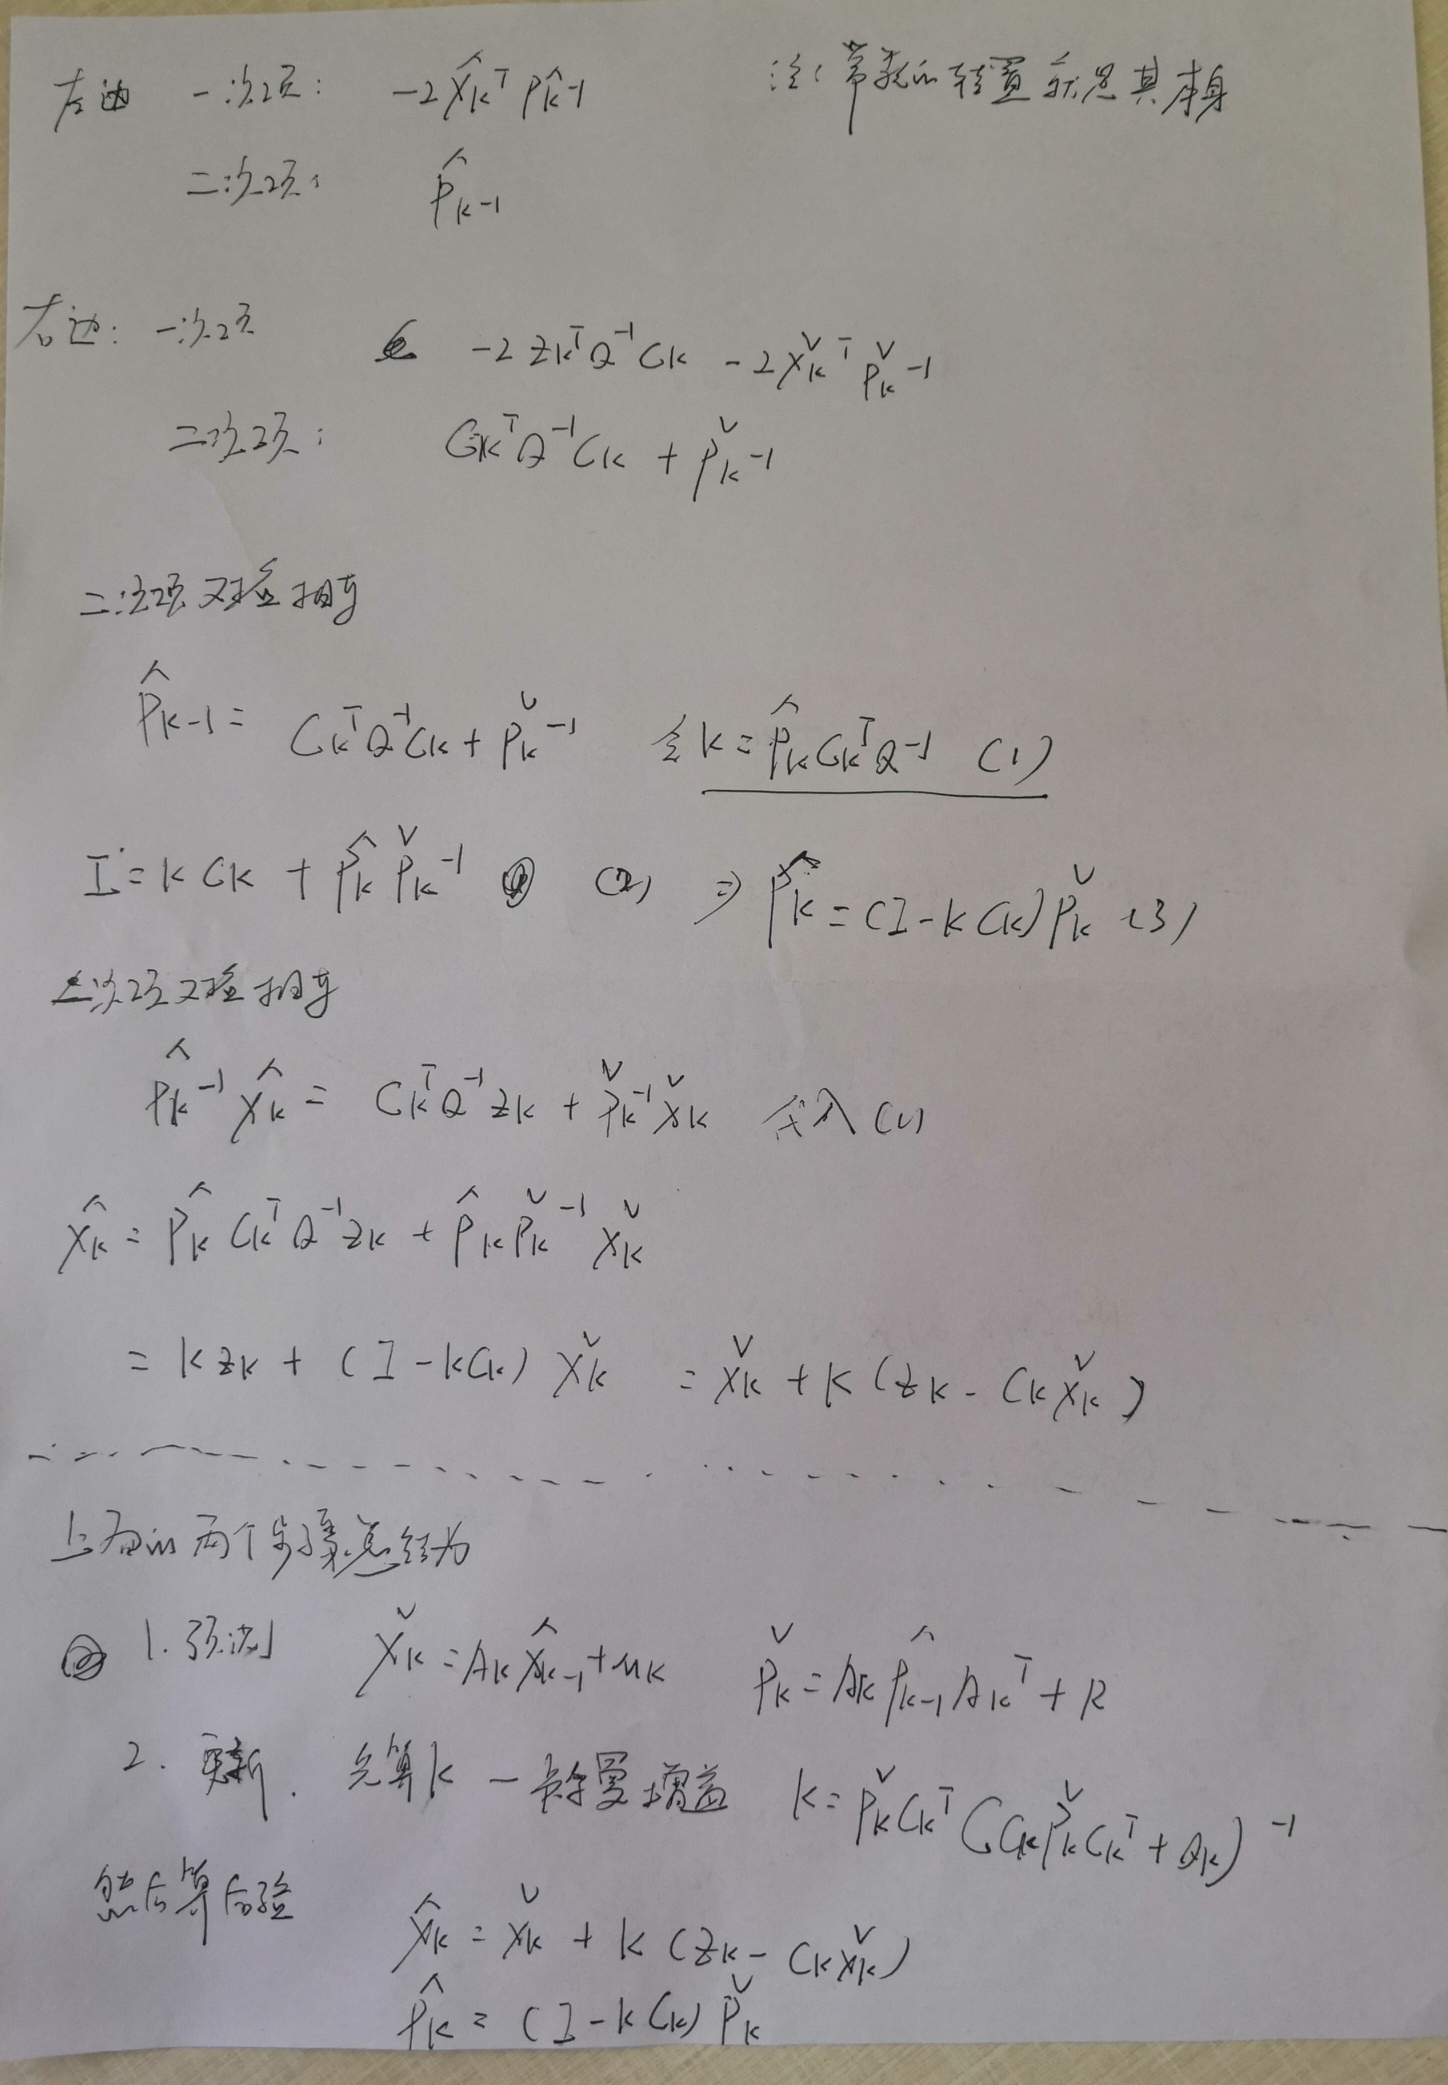 左边 一次项: -2x̂ₖᵀ P̂ₖ⁻¹ 注: 常数的转置就是其本身
二次项: P̂ₖ₋₁
右边: 一次项 -2zₖᵀQ⁻¹Cₖ - 2x̌ₖᵀ P̌ₖ⁻¹
二次项: CₖᵀQ⁻¹Cₖ + P̌ₖ⁻¹
二次项对应相等
P̂ₖ₋₁ = CₖᵀQ⁻¹Cₖ + P̌ₖ⁻¹ 令 K = P̂ₖCₖᵀQ⁻¹ (1)
I = KCₖ + P̂ₖP̌ₖ⁻¹ (2) ⇒ P̂ₖ = (I-KCₖ)P̌ₖ (3)
一次项对应相等
P̂ₖ⁻¹x̂ₖ = CₖᵀQ⁻¹zₖ + P̌ₖ⁻¹x̌ₖ 代入(1)
x̂ₖ = P̂ₖCₖᵀQ⁻¹zₖ + P̂ₖP̌ₖ⁻¹x̌ₖ
= Kzₖ + (I-KCₖ)x̌ₖ = x̌ₖ + K(zₖ - Cₖx̌ₖ)
上面的两个步骤总结为
1. 预测 x̌ₖ = Aₖx̂ₖ₋₁ + uₖ P̌ₖ = AₖP̂ₖ₋₁Aₖᵀ + R
2. 更新. 先算K — 卡尔曼增益 K = P̌ₖCₖᵀ(CₖP̌ₖCₖᵀ + Qₖ)⁻¹
然后算后验 x̂ₖ = x̌ₖ + K(zₖ - Cₖx̌ₖ)
P̂ₖ = (I-KCₖ)P̌ₖ